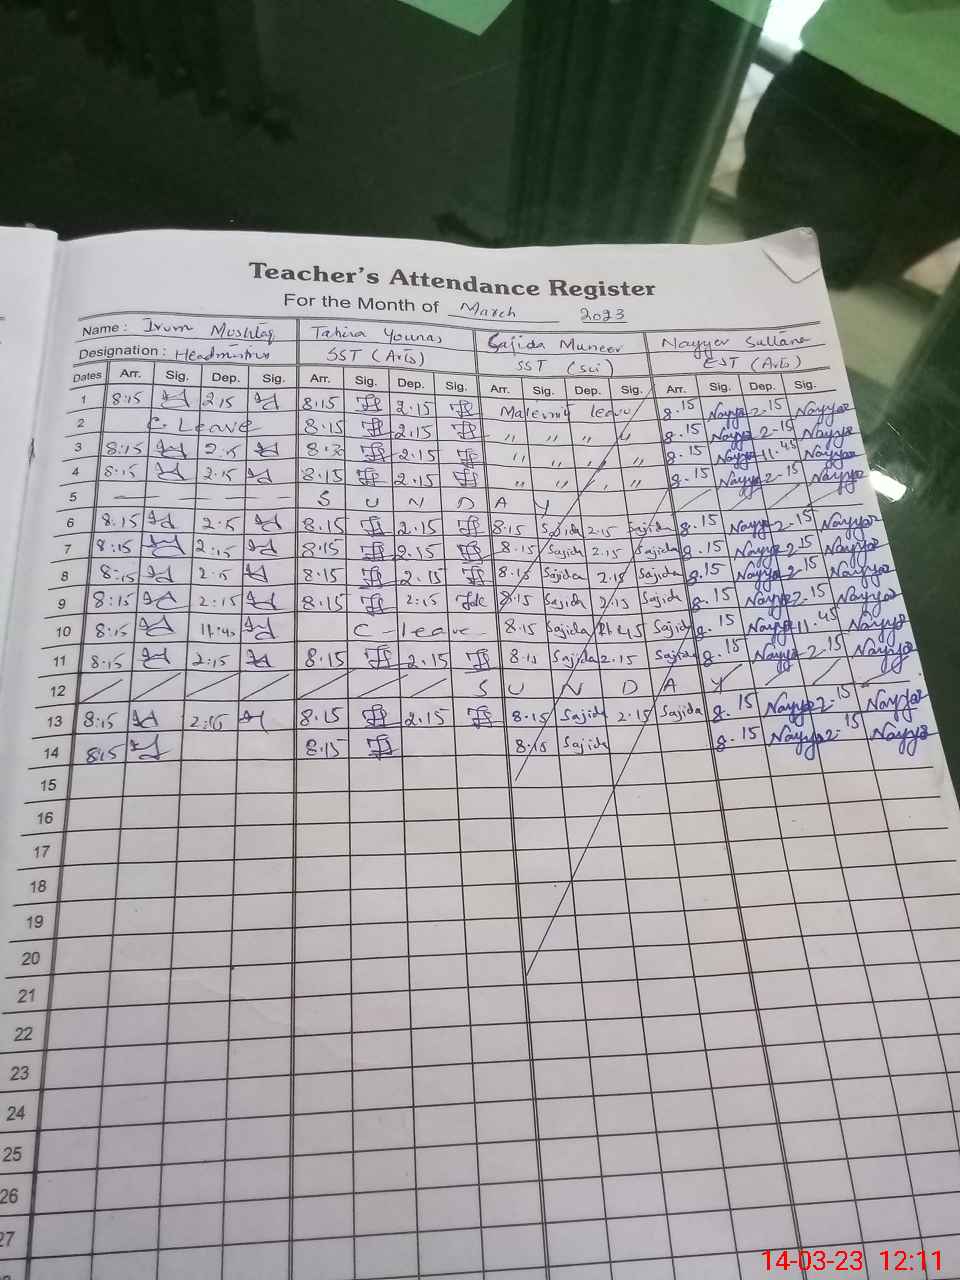 Teacher's Attendance Register
For the Month of March 2023
Name: Irum Mushtaq Tahira Younas Sajida Muneer Nayyer Sultana
Designation: Headmistress SST (Arts) SST (Sci) EST (Arts)
Dates Arr. Sig. Dep. Sig. Arr. Sig. Dep. Sig. Arr. Sig. Dep. Sig. Arr. Sig. Dep. Sig.
1 8:15 2:15 8:15 2.15 Maternity leave 8.15 Nayyer 2-15 Nayyer
2 C. Leave 8:15 2.15 " " " " 8.15 Nayyer 2-15 Nayyer
3 8:15 2:15 8:30 2.15 " " " " 8.15 Nayyer 11.45 Nayyer
4 8:15 2:15 8:15 2.15 " " " " 8.15 Nayyer 2-15 Nayyer
5 — — — — S U N D A Y
6 8:15 2:15 8:15 2.15 8:15 Sajida 2.15 Sajida 8.15 Nayyer 2-15 Nayyer
7 8:15 2:15 8:15 2.15 8.15 Sajida 2.15 Sajida 8.15 Nayyer 2.15 Nayyer
8 8:15 2:15 8:15 2.15 8.15 Sajida 2.15 Sajida 8.15 Nayyer 2.15 Nayyer
9 8:15 2:15 8:15 2:15 8.15 Sajida 2.15 Sajida 8.15 Nayyer 2-15 Nayyer
10 8:15 11:45 C-leave 8.15 Sajida 45 Sajida 8.15 Nayyer 11.45 Nayyer
11 8:15 2:15 8:15 2.15 8.15 Sajida 2.15 Sajida 8.15 Nayyer 2.15 Nayyer
12 S U N D A Y
13 8:15 2:15 8.15 2.15 8.15 Sajida 2.15 Sajida 8.15 Nayyer 2.15 Nayyer
14 8:15 8.15 8.15 Sajida 8.15 Nayyer 2.15 Nayyer
15
16
17
18
19
20
21
22
23
24
25
26
27
14-03-23 12:11